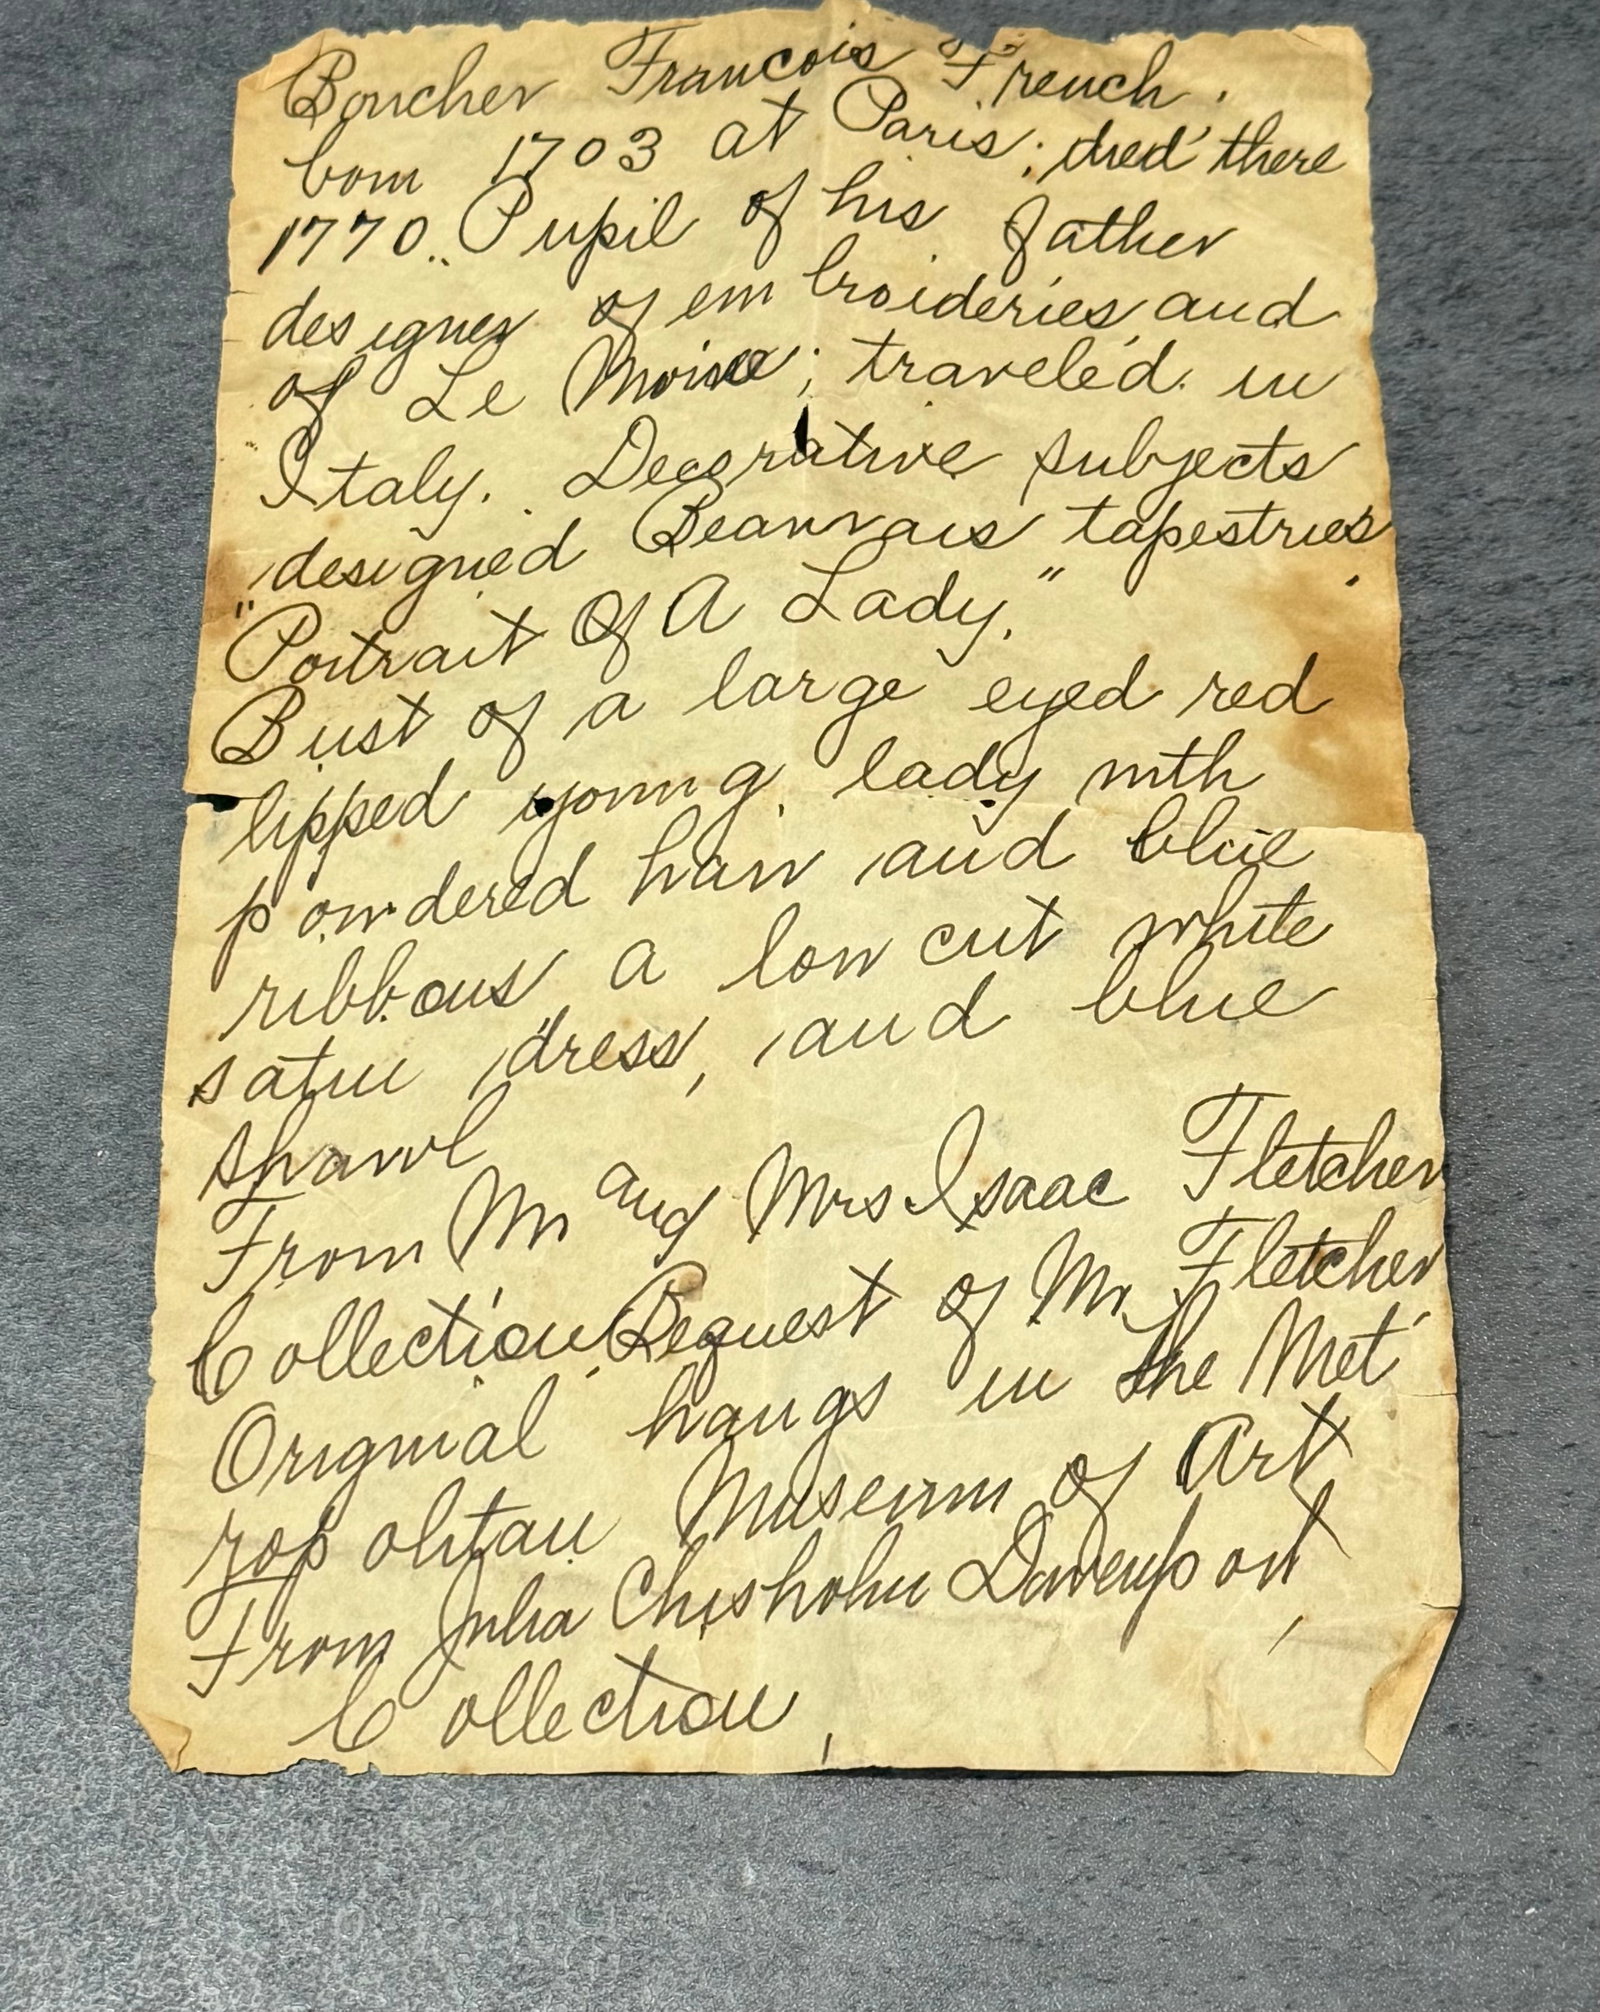 Boucher Francois French.
born 1703 at Paris; died there
1770. Pupil of his father
designer of embroideries and
of Le Moine; traveled in
Italy. Decorative subjects
designed Beauvais tapestries.
"Portrait Of A Lady."
Bust of a large eyed red
lipped young lady with
powdered hair and blue
ribbons a low cut white
satin dress, and blue
shawl
From Mr and Mrs Isaac Fletcher
Collection. Bequest of Mr. Fletcher
Original hangs in the Met
ropolitan Museum of Art
From Julia Chisholm Davenport,
Collection,